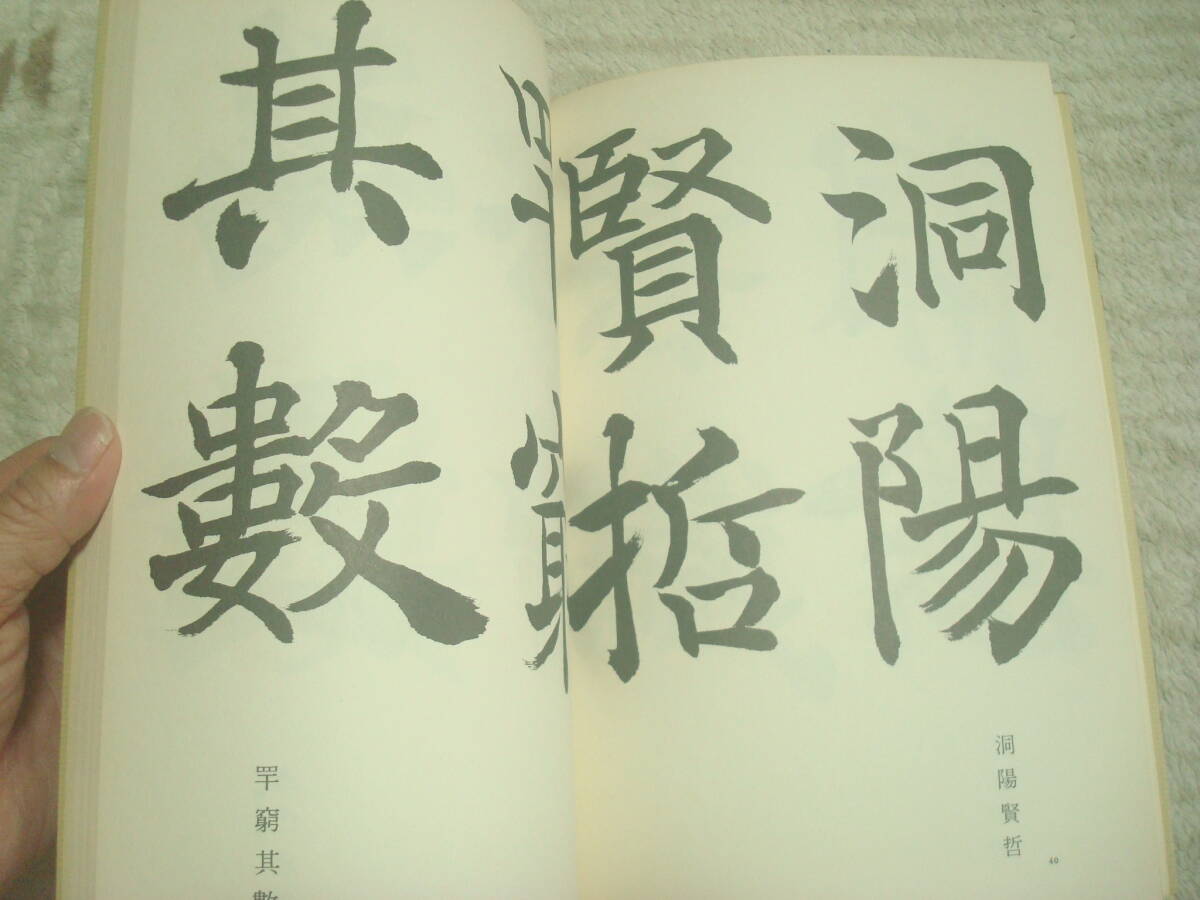 洞陽
賢哲
洞陽賢哲
40
罕窮
其數
罕窮其數